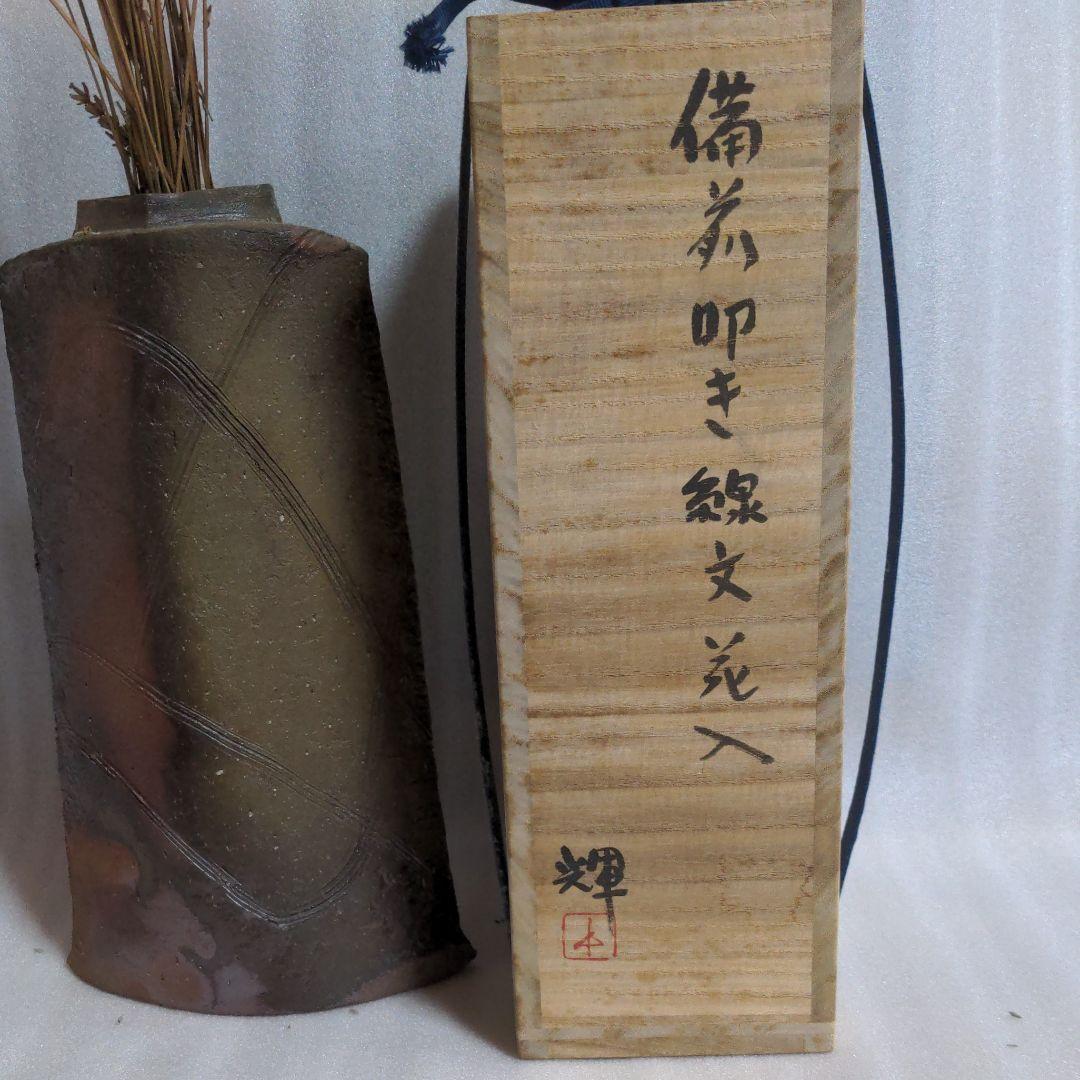 備前叩き線文花入
輝